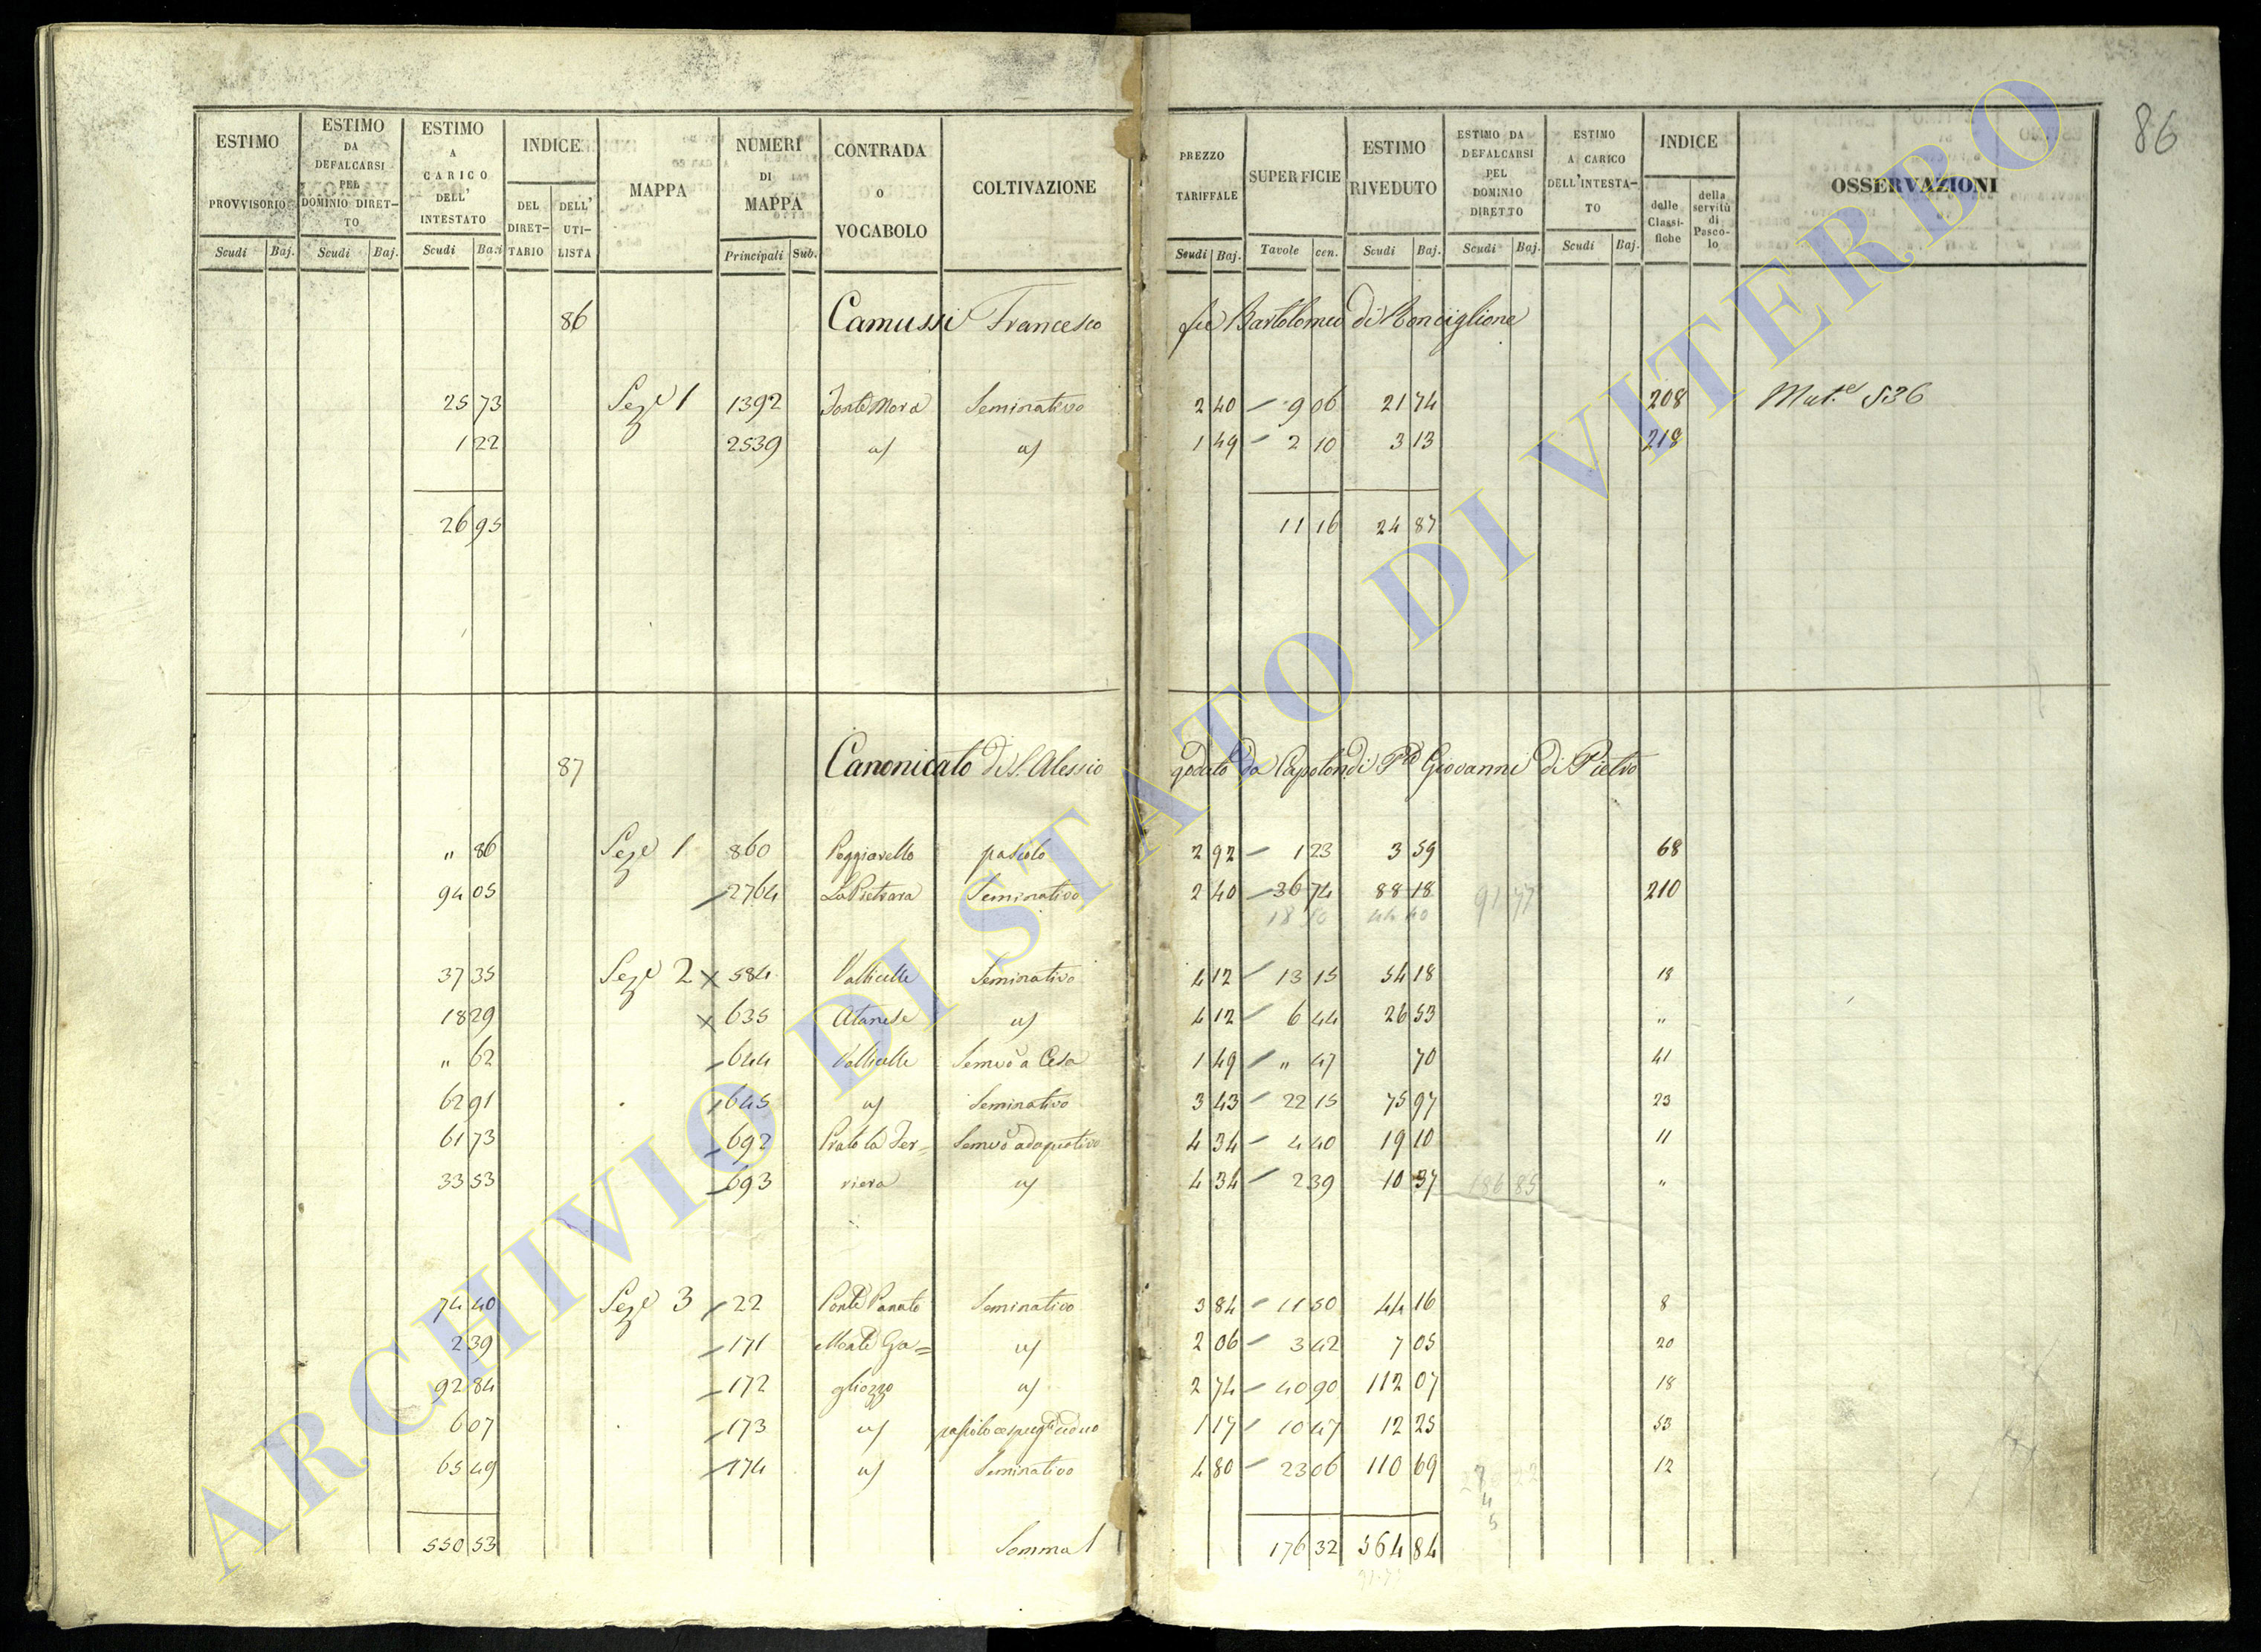 86
ESTIMO PROVVISORIO Scudi Baj.
ESTIMO DA DEFALCARSI PEL DOMINIO DIRET-TO Scudi Baj.
ESTIMO A CARICO DELL' INTESTATO Scudi Baj.
INDICE DEL DIRET-TARIO DELL' UTI-LISTA
MAPPA
NUMERI DI MAPPA Principali Sub.
CONTRADA O VOCABOLO
COLTIVAZIONE
PREZZO TARIFFALE Scudi Baj.
SUPERFICIE Tavole cen.
ESTIMO RIVEDUTO Scudi Baj.
ESTIMO DA DEFALCARSI PEL DOMINIO DIRETTO Scudi Baj.
ESTIMO A CARICO DELL'INTESTA-TO Scudi Baj.
INDICE delle Classi-fiche della servitù di Pasco-lo
OSSERVAZIONI
86 Camussi Francesco fu Bartolomeo di Ronciglione
25 73 Seze 1 1392 Seminativo 2 40 9 06 21 74 208 Mut.e 536
1 22 2539 a/ a/ 1 49 2 10 3 13 218
26 95 11 16 24 87
87 Canonicato di S. Alessio goduto da Capotondi Giovanni di Pietro
" 86 Seze 1 860 Poggiarello pascolo 2 92 1 23 3 59 68
94 05 2764 La Pietrara Seminativo 2 40 36 74 88 18 91 77 210
18 50 44 40
37 35 Seze 2 x 584 Vallicelle Seminativo 4 12 13 15 54 18 18
18 29 x 635 Atanese a/ 4 12 6 44 26 53 "
" 62 644 Vallicelle Semivo a Cesa 1 49 " 47 70 41
62 91 645 a/ Seminativo 3 43 22 15 75 97 23
61 73 692 Prato la Fer= Semivo adaquativo 4 34 4 40 19 10 11
33 53 693 riera a/ 4 34 2 39 10 37 186 85 "
74 40 Seze 3 22 Ponte Panato Seminativo 3 84 11 50 44 16 8
2 39 171 Monte Ga= a/ 2 06 3 42 7 05 20
92 84 172 gliozzo a/ 2 74 40 90 112 07 18
6 07 173 a/ 1 17 10 47 12 25 53
65 49 174 a/ Seminativo 4 80 23 06 110 69 12
550 53 Somma 176 32 564 84
ARCHIVIO DI STATO DI VITERBO